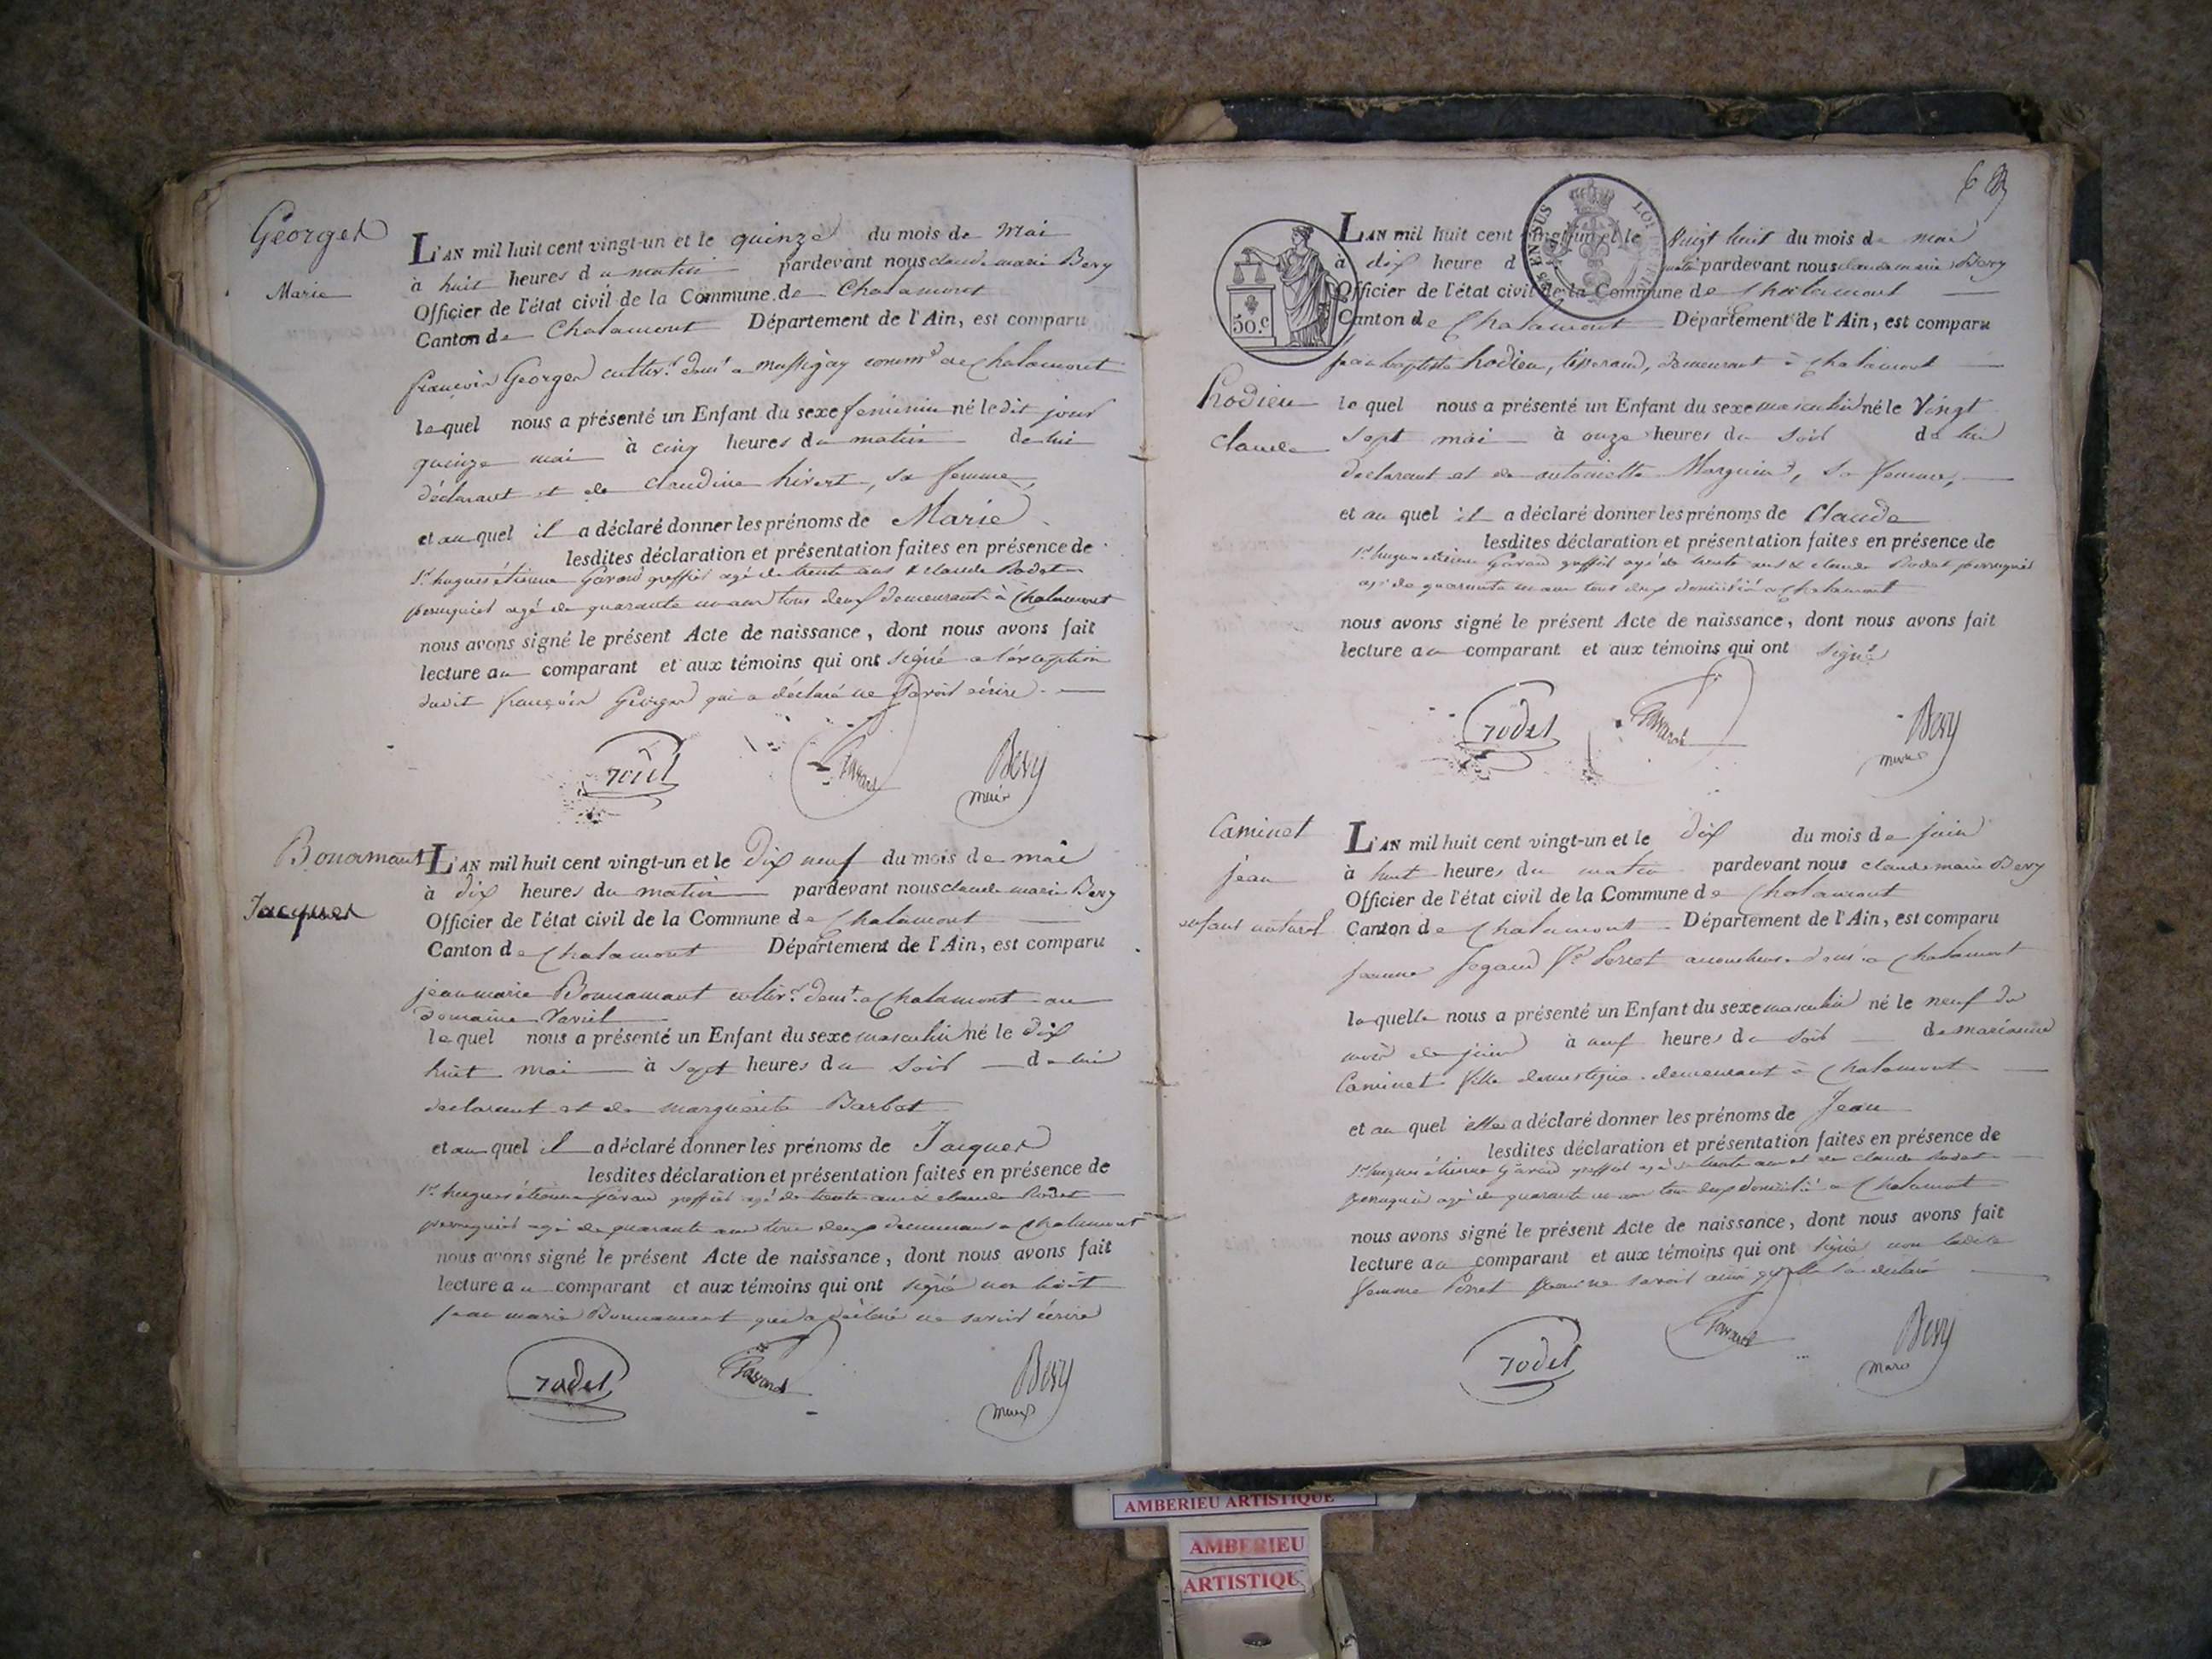 Georges
Marie
L'AN mil huit cent vingt-un et le quinze du mois de mai
à huit heures du matin pardevant nous claude marie Bevy
Officier de l'état civil de la Commune de Chalamont
Canton de Chalamont Département de l'Ain, est comparu
françois Georges cultiv.r dem.t a comm.e de chalamont
lequel nous a présenté un Enfant du sexe feminin né ledit jour
quinze mai à cinq heures du matin de lui
déclarant et de claudine hivert, sa femme,
et au quel il a déclaré donner les prénoms de Marie
lesdites déclaration et présentation faites en présence de
S.r hugues étienne Gavand greffier agé de trente ans & claude Rodet
perruquier agé de quarante un ans tous deux demeurant à Chalamont
nous avons signé le présent Acte de naissance, dont nous avons fait
lecture au comparant et aux témoins qui ont signé a l'exception
dudit françois Georges qui a déclaré ne savoir écrire.
rodet Gavand Bevy
maire
Bonamant
Jacques
L'AN mil huit cent vingt-un et le dix neuf du mois de mai
à dix heures du matin pardevant nous claude marie Bevy
Officier de l'état civil de la Commune de Chalamont
Canton de Chalamont Département de l'Ain, est comparu
jean marie Bonnamant cultiv.r dem.t a Chalamont au
domaine
lequel nous a présenté un Enfant du sexe masculin né le dix
huit mai à sept heures du soir de lui
declarant et de marguerite Barbat
et au quel il a déclaré donner les prénoms de Jacques
lesdites déclaration et présentation faites en présence de
S.r hugues étienne Gavand greffier agé de trente ans & claude Rodet
perruquier agé de quarante ans tous deux demeurans a Chalamont
nous avons signé le présent Acte de naissance, dont nous avons fait
lecture au comparant et aux témoins qui ont signé non ledit
jean marie Bonnamant qui a déclaré ne savoir écrire
rodet Gavand Bevy
maire
6
50.c
EN SUS LOI
L'AN mil huit cent vingt-un et le vingt huit du mois de mai
à dix heure d matin pardevant nous claude marie Bevy
Officier de l'état civil de la Commune de Chalamont
Canton de Chalamont Département de l'Ain, est comparu
jean baptiste hodieu, tisserand, demeurant à Chalamont
hodieu
claude
lequel nous a présenté un Enfant du sexe masculin né le Vingt
sept mai à onze heures du soir de lui
declarant et de antoinette Marguin, sa femme,
et au quel il a déclaré donner les prénoms de Claude
lesdites déclaration et présentation faites en présence de
S.r hugues etienne Gavand greffier agé de trente ans & claude Rodet perruquier
agé de quarante un ans tous deux domicilié a Chalamont
nous avons signé le présent Acte de naissance, dont nous avons fait
lecture au comparant et aux témoins qui ont signé
rodet Gavand Bevy
maire
Caminet
jean
enfant naturel
L'AN mil huit cent vingt-un et le dix du mois de juin
à huit heures du matin pardevant nous claude marie Bevy
Officier de l'état civil de la Commune de Chalamont
Canton de Chalamont Département de l'Ain, est comparu
jeanne Segaud f.e Perret accoucheuse dem.t a Chalamont
laquelle nous a présenté un Enfant du sexe masculin né le neuf du
mois de juin à neuf heures du soir de marianne
Caminet fille domestique demeurant à Chalamont
et au quel elle a déclaré donner les prénoms de Jean
lesdites déclaration et présentation faites en présence de
S.r hugues étienne Gavand greffier agé de trente ans et de claude Rodet
perruquier agé de quarante un ans tous deux domicilié a Chalamont
nous avons signé le présent Acte de naissance, dont nous avons fait
lecture au comparant et aux témoins qui ont signé non ladite
femme Perret ne savoir ainsi qu'elle l'a déclaré
rodet Gavand Bevy
maire
AMBERIEU ARTISTIQUE
AMBERIEU
ARTISTIQU